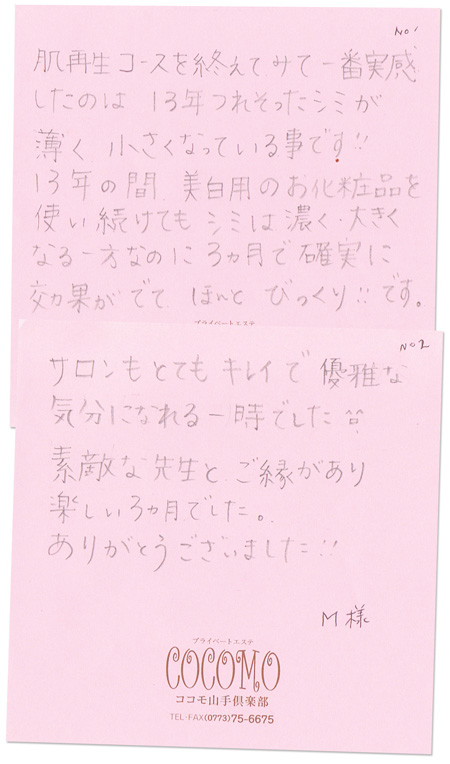 No1
肌再生コースを終えてみて一番実感
したのは 13年つれそったシミが
薄く 小さくなっている事です!!
13年の間 美白用のお化粧品を
使い続けても シミは濃く・大きく
なる一方なのに 3ヵ月で確実に
効果がでて ほんと びっくり!!です。
プライベートエステ
No2
サロンもとても キレイで 優雅な
気分になれる一時でした^^
素敵な先生と ご縁があり
楽しい3ヵ月でした。
ありがとうございました!!
M様
プライベートエステ
COCOMO
ココモ山手倶楽部
TEL・FAX(0773)75-6675